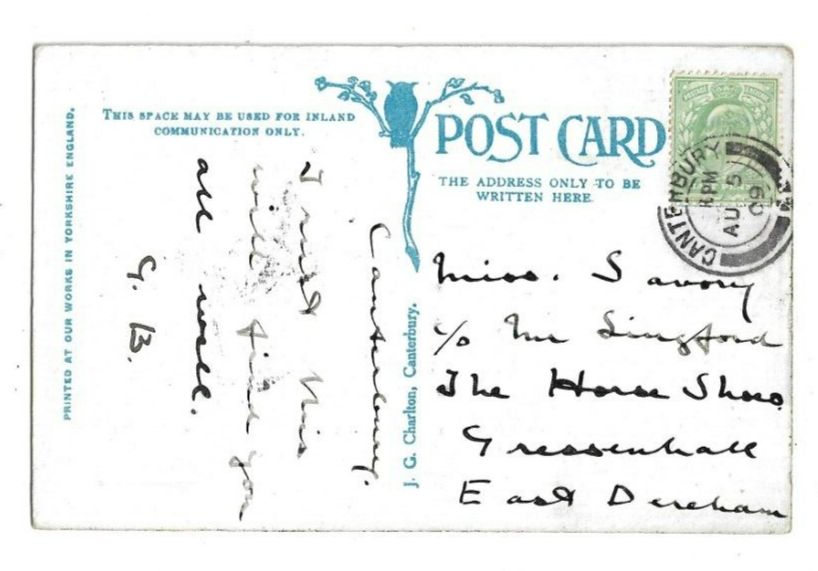 PRINTED AT OUR WORKS IN YORKSHIRE ENGLAND.
THIS SPACE MAY BE USED FOR INLAND
COMMUNICATION ONLY.
POST CARD
THE ADDRESS ONLY TO BE
WRITTEN HERE
CANTERBURY
PM
AU 5
09
Canterbury.
I trust this
will find you
all well.
G. B.
J. G. Charlton, Canterbury.
Miss. Savory
c/o Mr Lingford
The Horse Shoe
Gressenhall
East Dereham